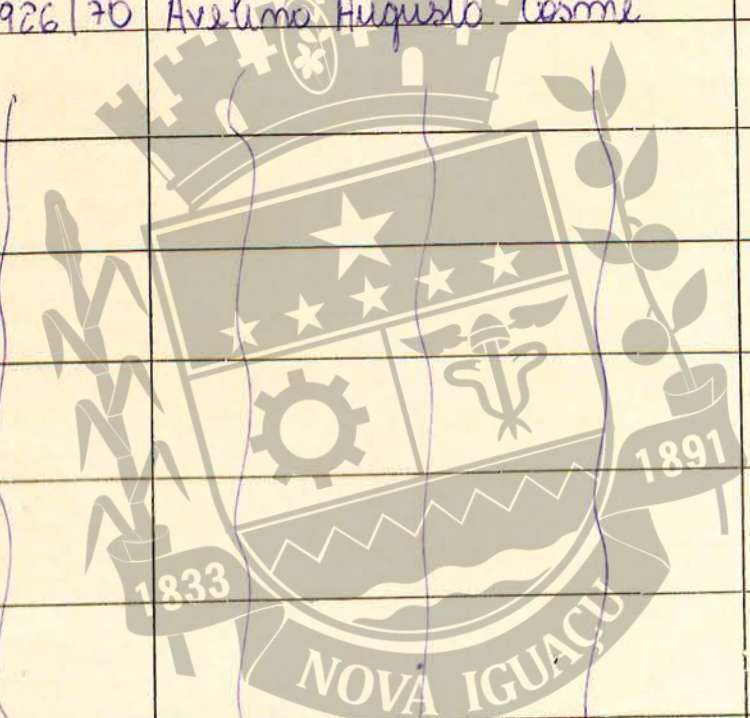 926/70 Avelino Augusto Cosme
1891
1833
NOVA IGUAÇU